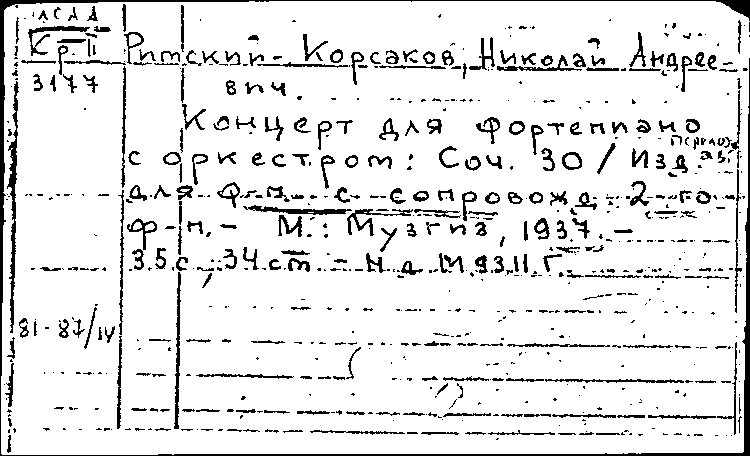 Кр.II
3177
Римский-Корсаков, Николай Андрее-
вич.
Концерт для фортепиано
с оркестром: Соч. 30 / Изд
для ф-п. с сопровожд. 2-го
ф-п. - М.: Музгиз, 1937. -
35с, 34ст - Н.д. М.9311Г.
81-87/IV